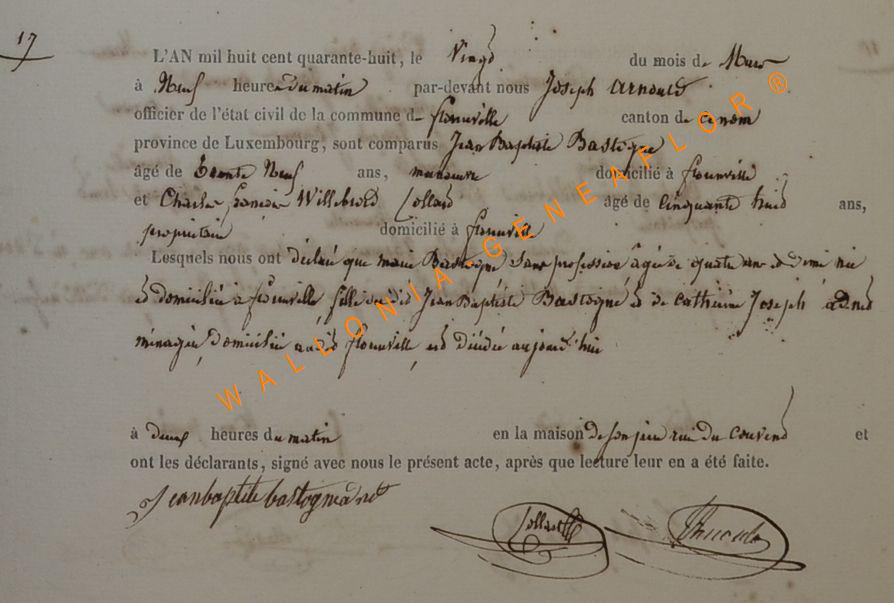 17
L'AN mil huit cent quarante-huit, le Vingt du mois de Mars
à Neuf heures du matin par-devant nous Joseph Arnould
officier de l'état civil de la commune de florenville canton de ce nom
province de Luxembourg, sont comparus Jean Baptiste Bastogne
âgé de Trente Neuf ans, manœuvre domicilié à florenville
et Charles françois Willebrord Collard âgé de Cinquante huit ans,
propriétaire domicilié à florenville
Lesquels nous ont déclaré que marie Bastogne sans profession âgée de quatre ans et demi née
et domiciliée à florenville fille dudit Jean Baptiste Bastogne et de Catherine Joseph adnet
ménagère, domiciliée audit florenville, est décédée aujourd'hui
à deux heures du matin en la maison de son père rue du Couvent et
ont les déclarants, signé avec nous le présent acte, après que lecture leur en a été faite.
Jean baptiste bastogne adnet
Collard
WALLONIA GENEAFLOR ®